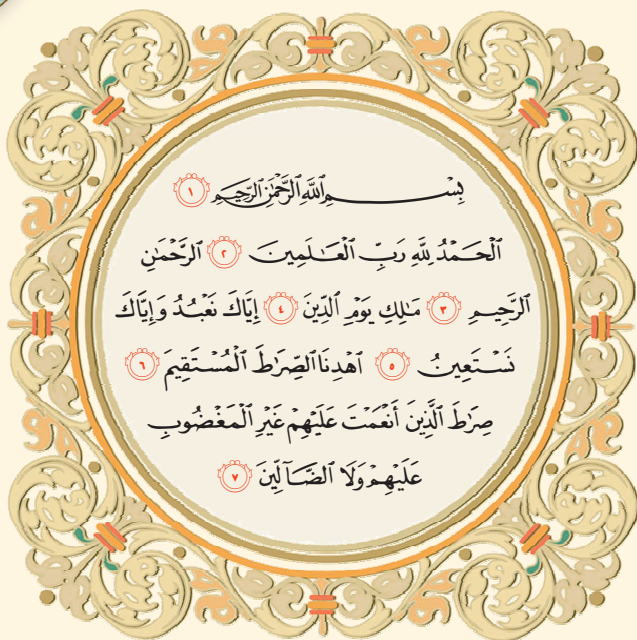 بِسْمِ ٱللَّهِ ٱلرَّحْمَٰنِ ٱلرَّحِيمِ ١
ٱلْحَمْدُ لِلَّهِ رَبِّ ٱلْعَـٰلَمِينَ ٢ ٱلرَّحْمَـٰنِ
ٱلرَّحِيمِ ٣ مَـٰلِكِ يَوْمِ ٱلدِّينِ ٤ إِيَّاكَ نَعْبُدُ وَإِيَّاكَ
نَسْتَعِينُ ٥ ٱهْدِنَا ٱلصِّرَٰطَ ٱلْمُسْتَقِيمَ ٦
صِرَٰطَ ٱلَّذِينَ أَنْعَمْتَ عَلَيْهِمْ غَيْرِ ٱلْمَغْضُوبِ
عَلَيْهِمْ وَلَا ٱلضَّآلِّينَ ٧